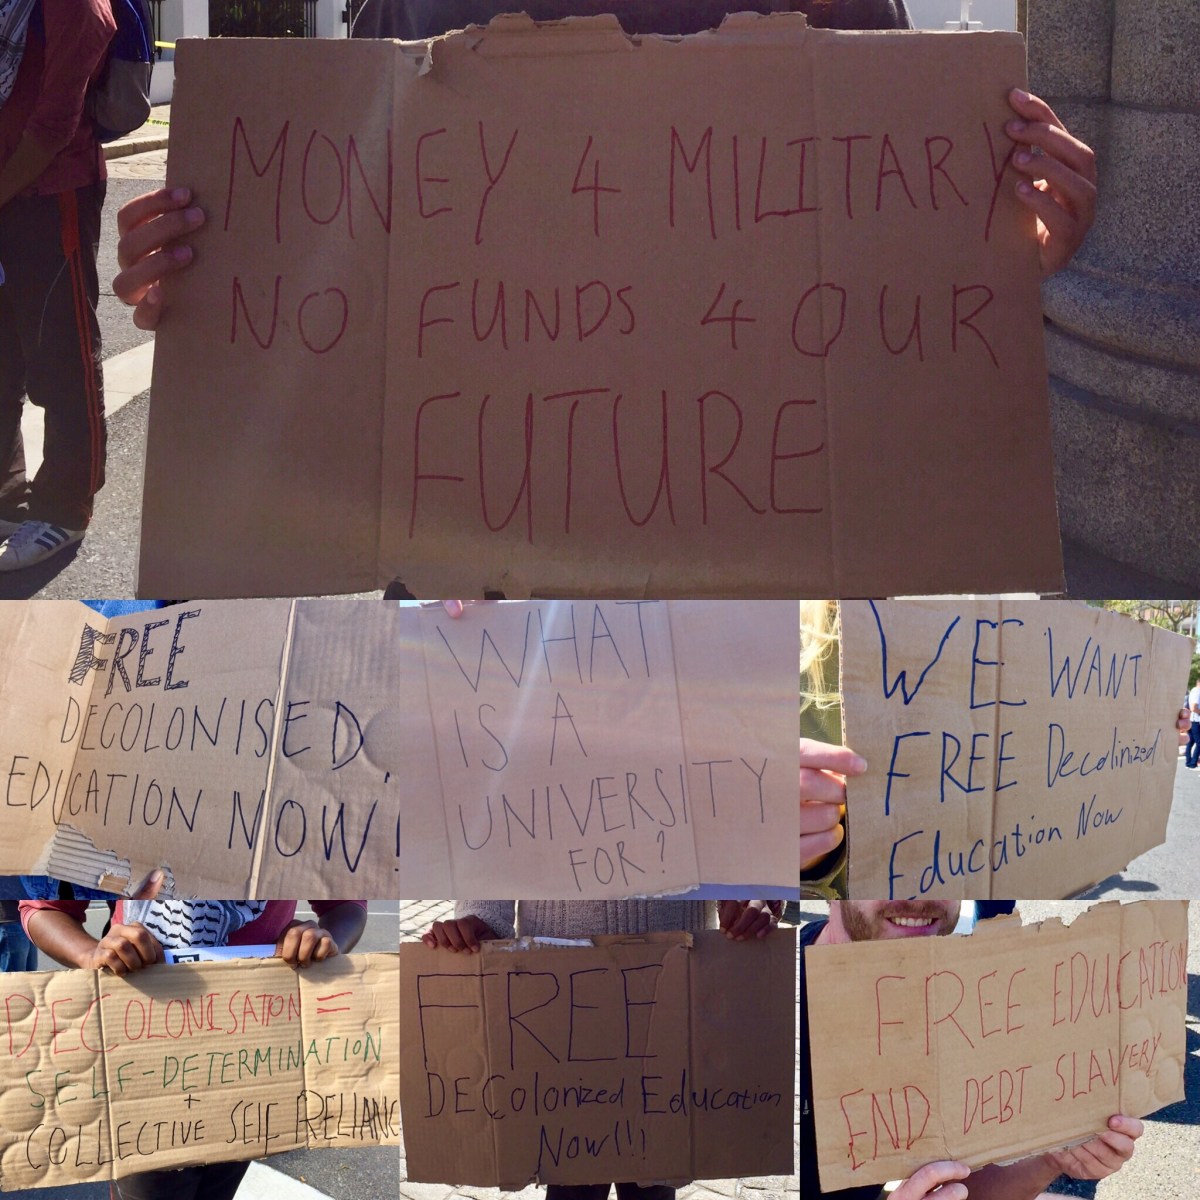 MONEY 4 MILITARY
NO FUNDS 4 OUR
FUTURE
FREE
DECOLONISED
EDUCATION NOW!
WHAT
IS A
UNIVERSITY
FOR?
WE WANT
FREE Decolinized
Education Now
DECOLONISATION =
SELF-DETERMINATION
+
COLLECTIVE SELF RELIANC
FREE
DEColonized Education
Now!!!
FREE EDUCATION
END DEBT SLAVERY